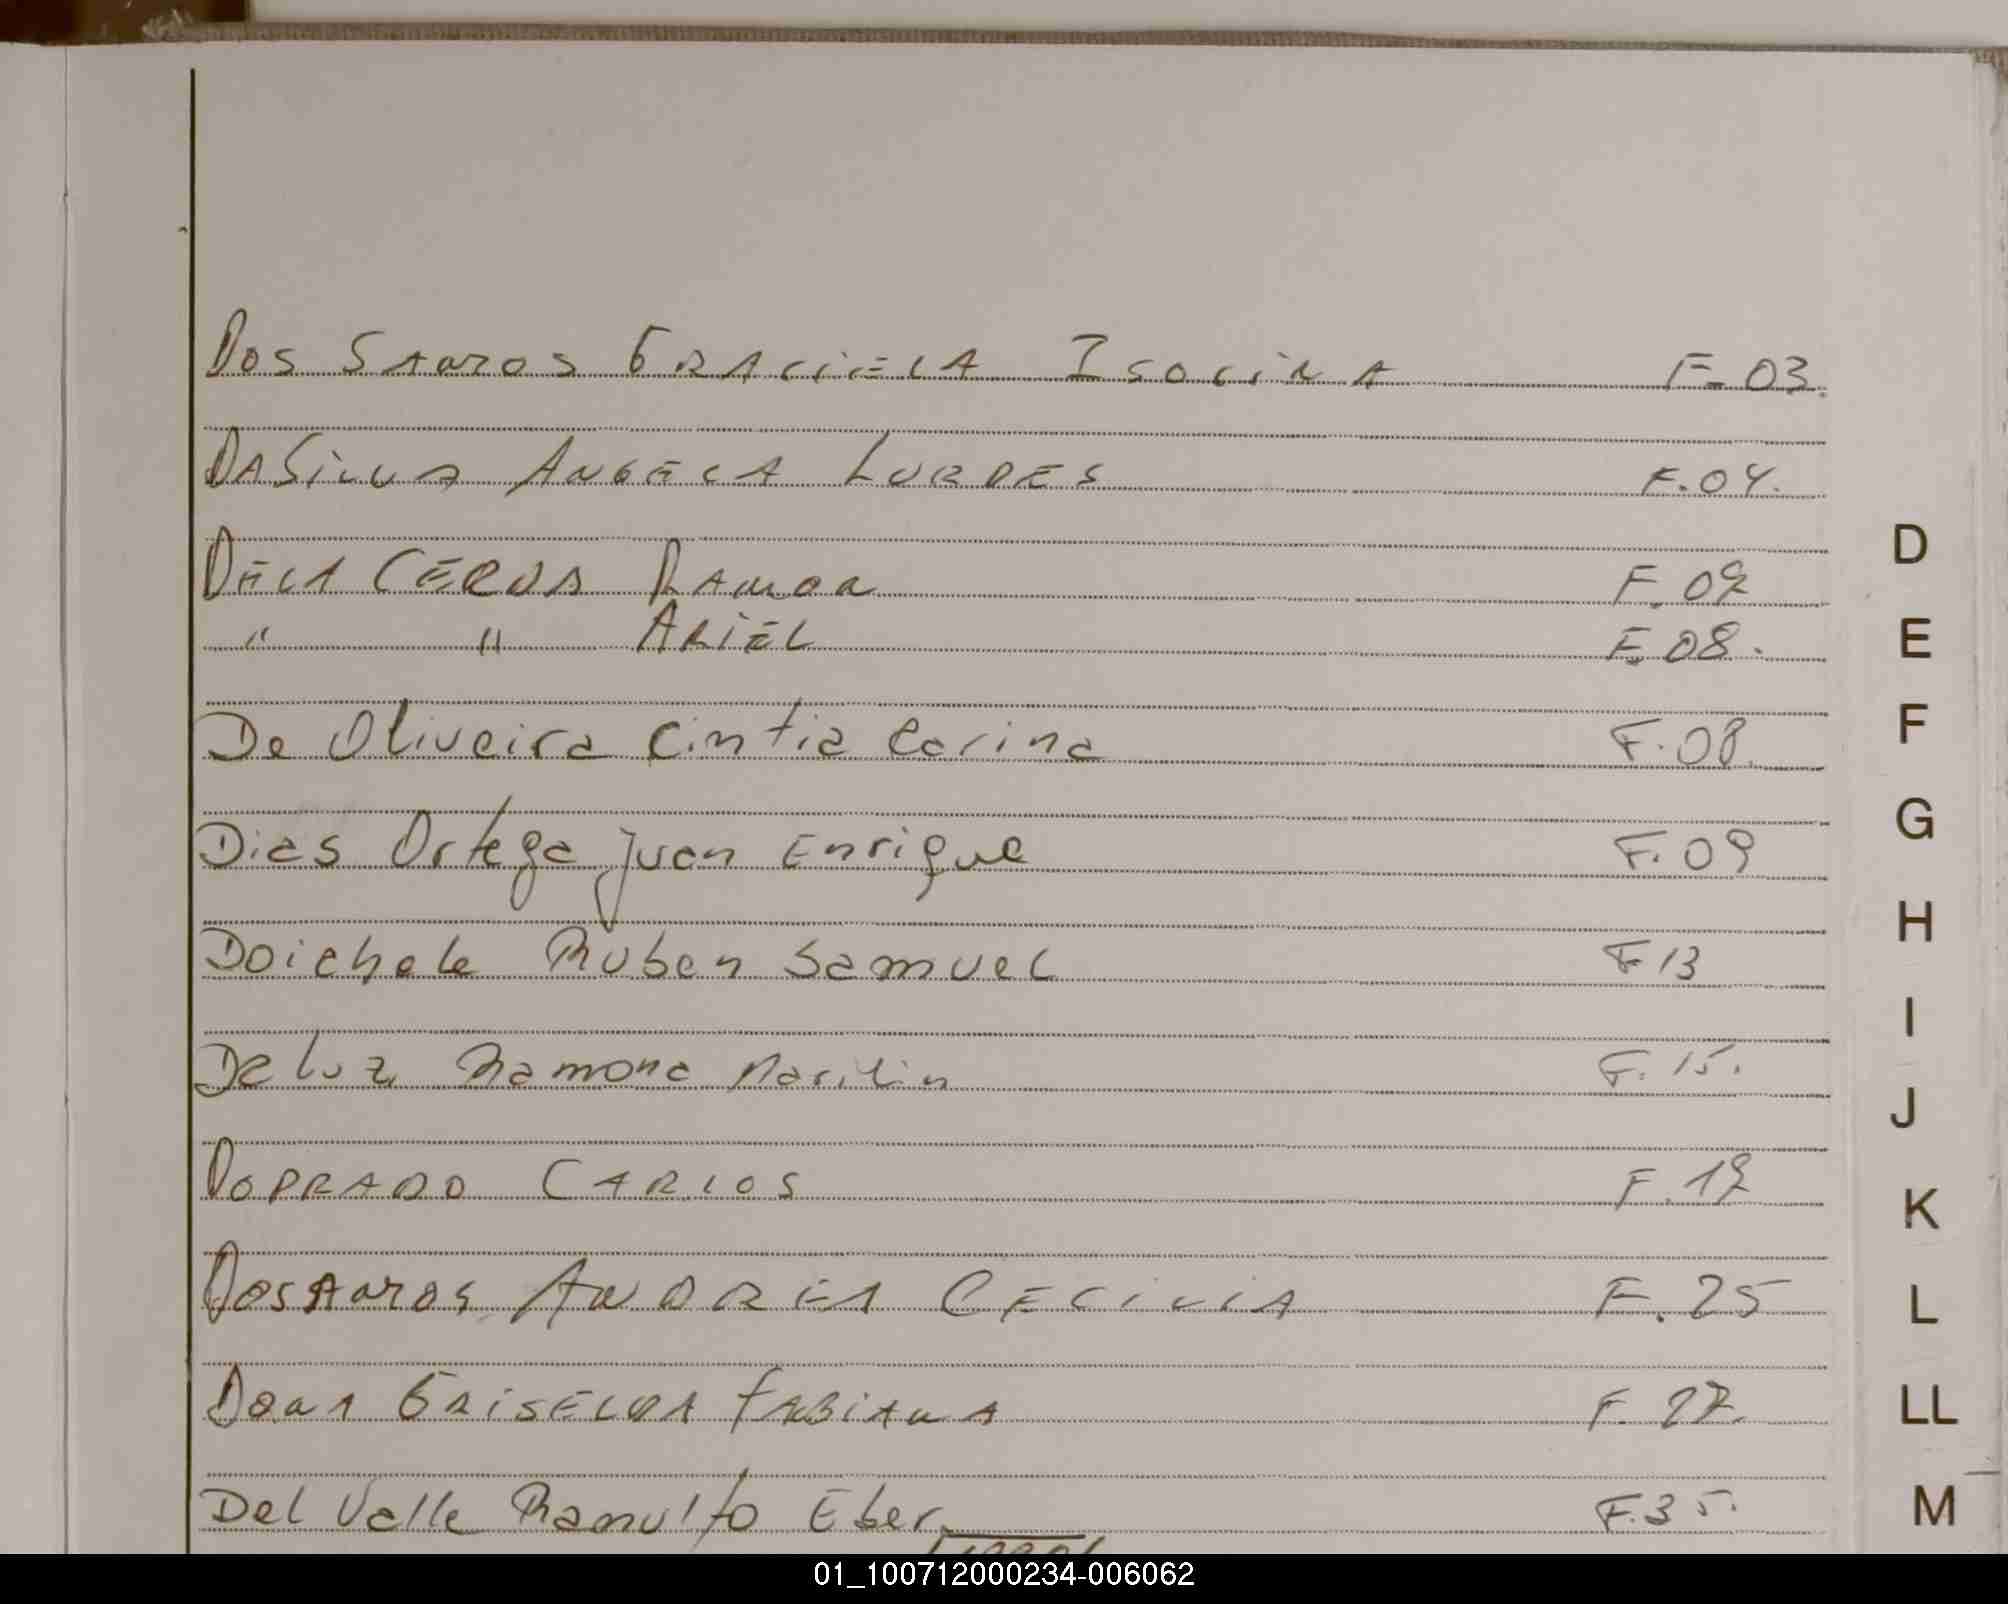 Dos Santos Graciela Isolina F-03.
DaSilva Angela Lurdes F.04.
Dela Cerda Ramon F.07
" " Ariel F.08.
De Oliveira Cintia Carina F.08.
Dias Ortega Juan Enrique F.09
Doichele Ruben Samuel F.13
De luz Ramona Marilin F.15.
Doprado Carlos F.17
Dosantos Andrea Cecilia F.25
Dona Griselda Fabiana F.27.
Del Valle Ranulfo Eber. F.35.
D
E
F
G
H
I
J
K
L
LL
M
01_100712000234-006062